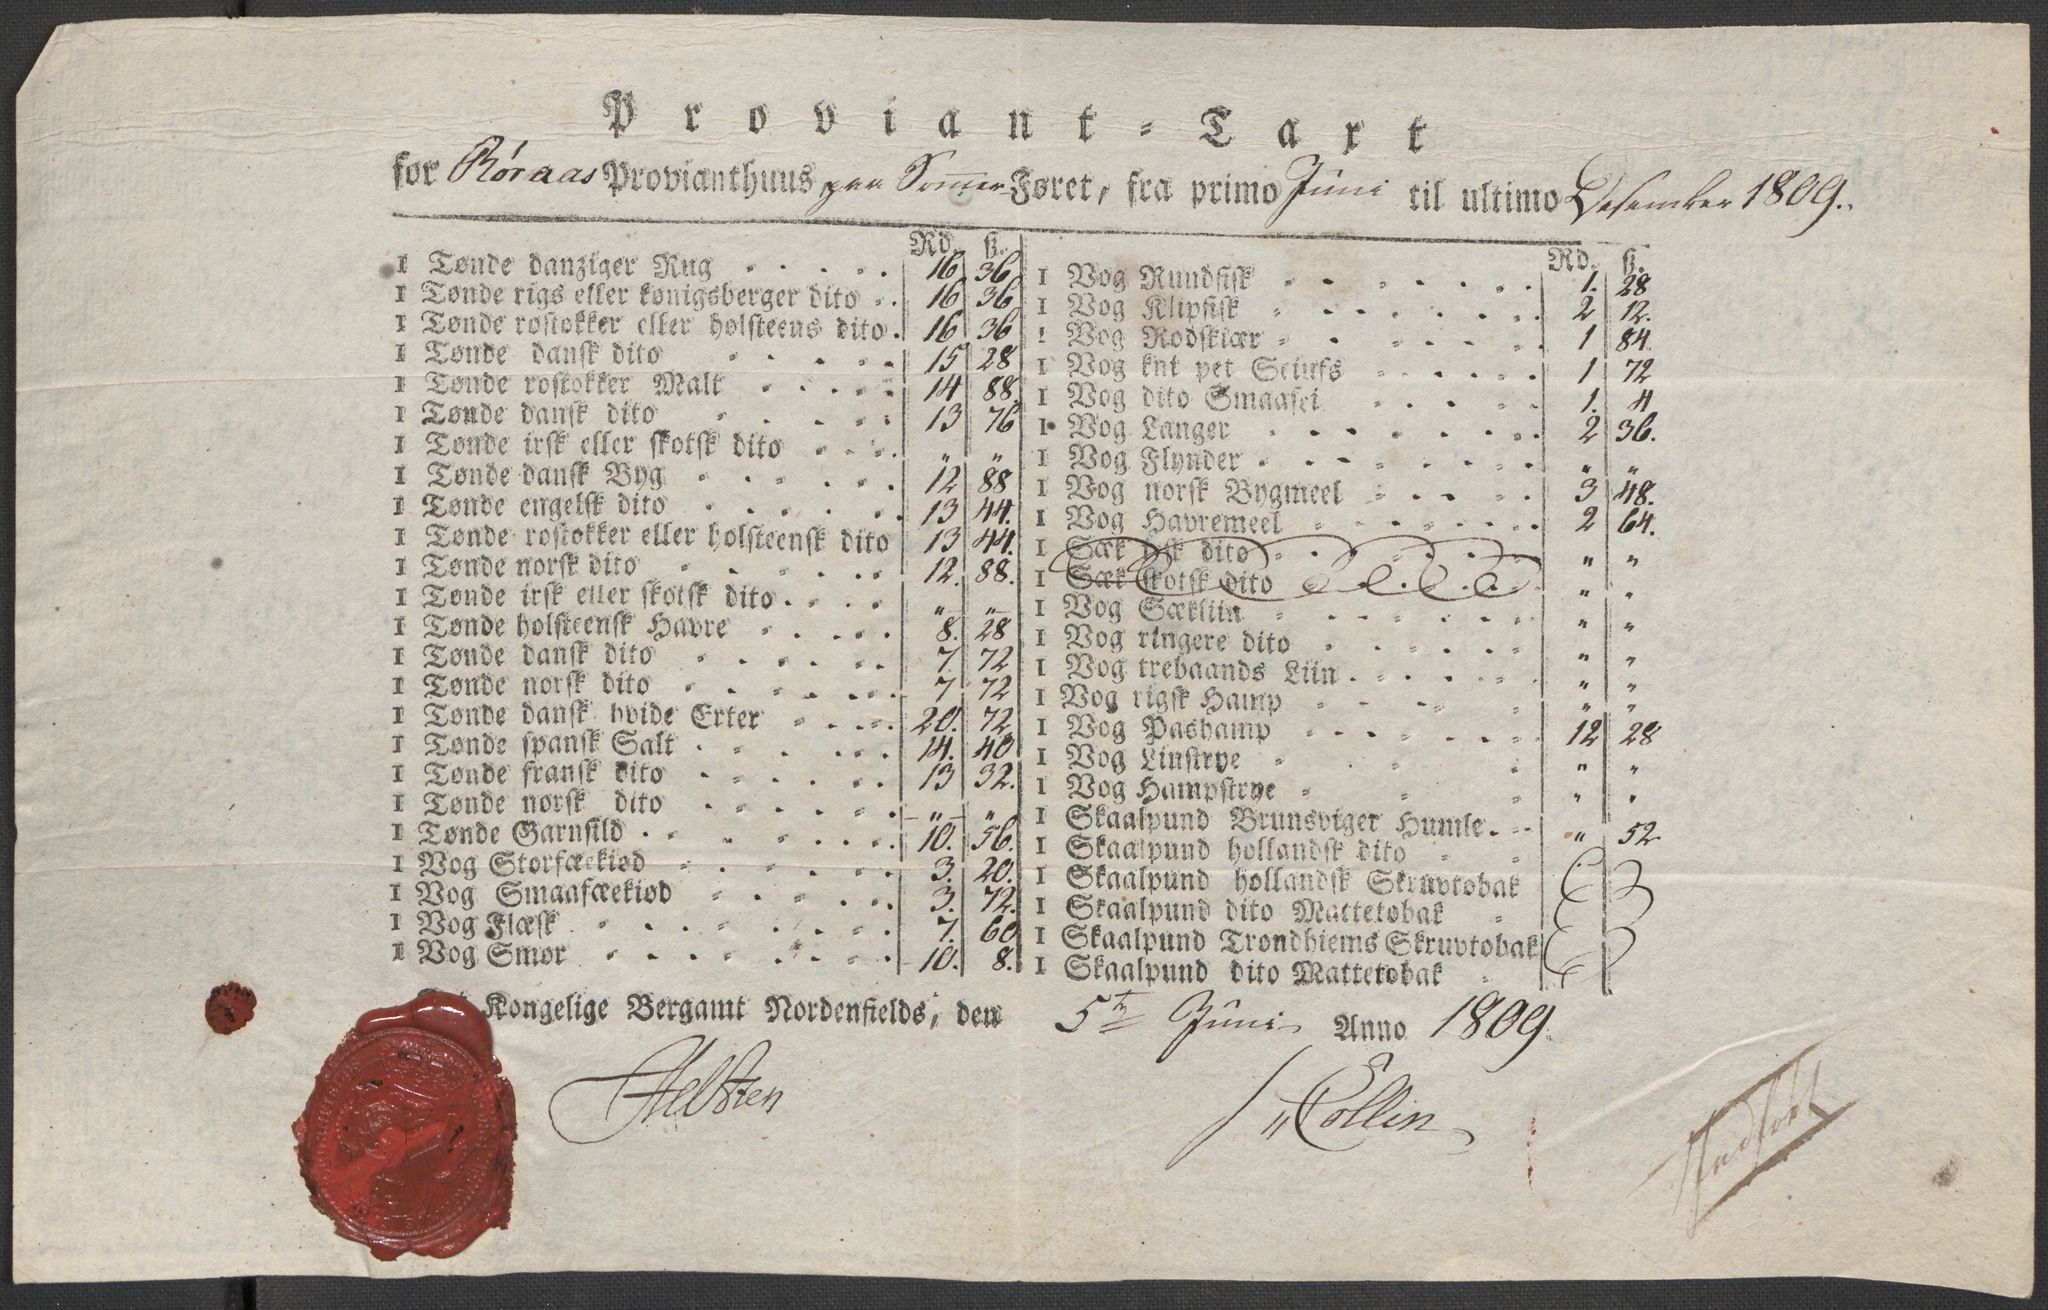 Proviant-Taxt
for Røraas Provianthuus paa Sommer-Føret, fra primo Juni til ultimo Desember 1809.
Rd. ß.
1 Tønde danziger Rug 16 36
1 Tønde rigs eller kønigsberger dito 16 36
1 Tønde rostokker eller holsteens dito 16 36
1 Tønde dansk dito 15 28
1 Tønde rostokker Malt 14 88.
1 Tønde dansk dito 13 76
1 Tønde irsk eller skotsk dito " "
1 Tønde dansk Byg 12 88
1 Tønde engelsk dito 13 44.
1 Tønde rostokker eller holsteensk dito 13 44.
1 Tønde norsk dito 12. 88.
1 Tønde irsk eller skotsk dito " "
1 Tønde holsteensk Havre 8. 28
1 Tønde dansk dito 7. 72
1 Tønde norsk dito 7 72
1 Tønde dansk hvide Erter 20. 72
1 Tønde spansk Salt 14. 40
1 Tønde fransk dito 13 32.
1 Tønde norsk dito " "
1 Tønde Garnsild 10. 56.
1 Vog Storfæekiød 3. 20.
1 Vog Smaafæekiød 3. 72.
1 Vog Flæsk 7. 60
1 Vog Smør 10. 8.
Rd. ß.
1 Vog Rundfisk 1. 28
1 Vog Klipfisk 2 12.
1 Vog Rodsklær 1 84
1 Vog knt pet Seiufs 1 72
1 Vog dito Smaasei 1. 4
1 Vog Langer 2 36.
1 Vog Flynder " "
1 Vog norsk Bygmeel 3 48.
1 Vog Havremeel 2 64.
1 Sæk irsk dito " "
1 Sæk skotsk dito " "
1 Vog Sækliin " "
1 Vog ringere dito " "
1 Vog trebaands Liin " "
1 Vog rigsk Hamp " "
1 Vog Pashamp 12 28
1 Vog Linstrye " "
1 Vog Hampstrye " "
1 Skaalpund Brunsviger Humle " 52
1 Skaalpund hollandsk dito
1 Skaalpund hollandsk Skruvtobak
1 Skaalpund dito Mattetobak
1 Skaalpund Trondhiems Skruvtobak
1 Skaalpund dito Mattetobak
Kongelige Bergamt Nordenfields, den 5te Juni Anno 1809.
Collin